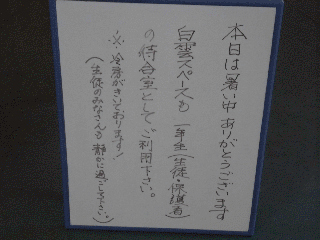 本日は暑い中ありがとうございます
白雲スペースも 一年生(生徒・保護者)
の待合室としてご利用下さい。
※冷房がきいております!
(生徒のみなさんも 静かに過ごして下さい)